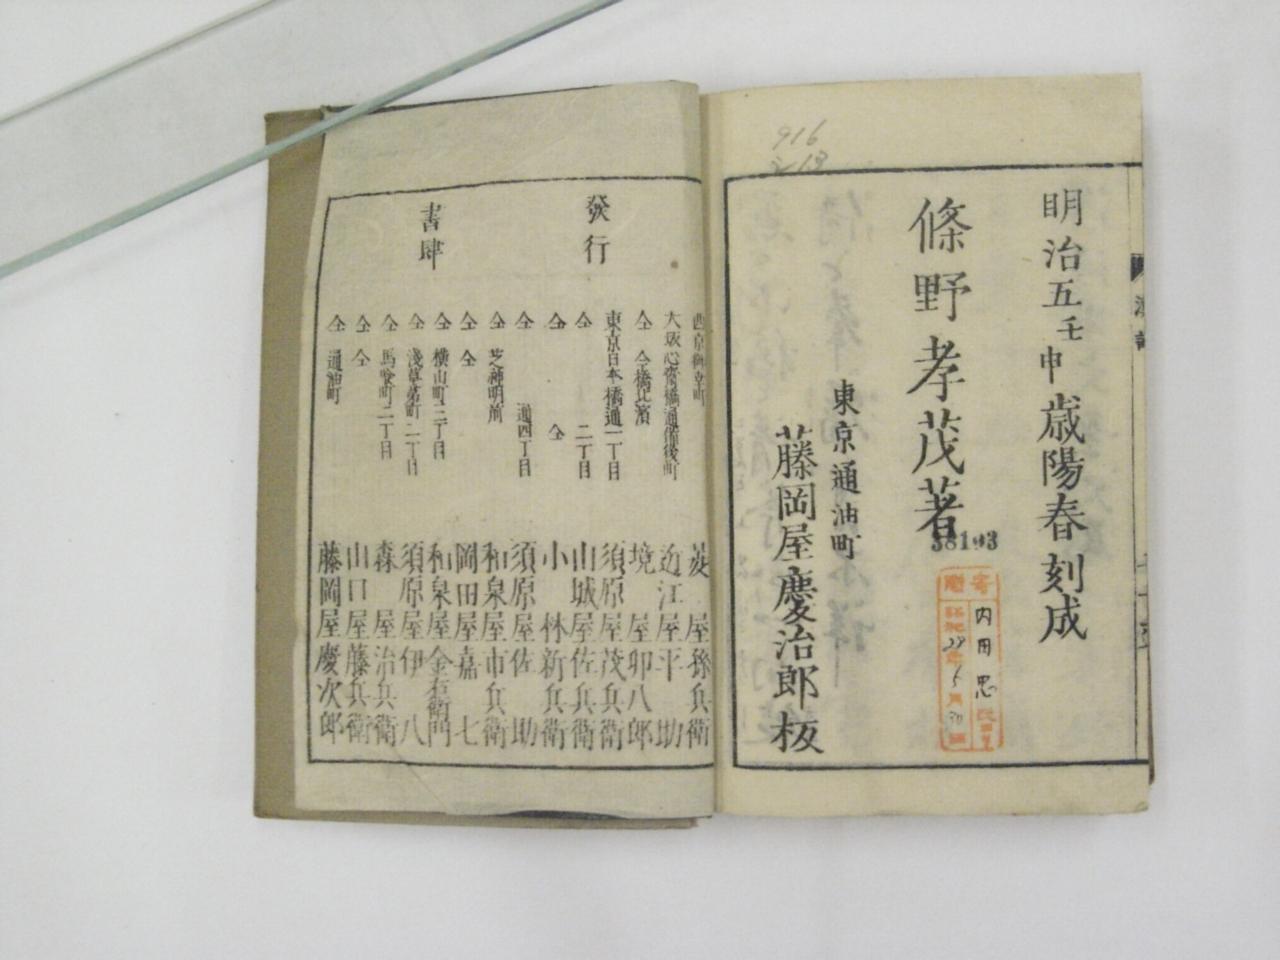 916
213
明治五壬申歳陽春刻成
條野孝茂著
38193
寄贈
内田忠
昭和 29年 5月 30日
東京通油町
藤岡屋慶治郎板
發行
書肆
西京御幸町 菱屋孫兵衛
大坂心齋橋通備後町 近江屋平助
仝 今橋北濱 境屋卯八郎
東京日本橋通一丁目 須原屋茂兵衛
仝 仝 二丁目 山城屋佐兵衛
仝 小林新兵衛
仝 通四丁目 須原屋佐助
仝 芝神明前 和泉屋市兵衛
仝 仝 岡田屋嘉七
仝 横山町三丁目 和泉屋金右衛門
仝 淺草茅町二丁目 須原屋伊八
仝 馬喰町二丁目 森屋治兵衛
仝 仝 山口屋藤兵衛
仝 通油町 藤岡屋慶次郎